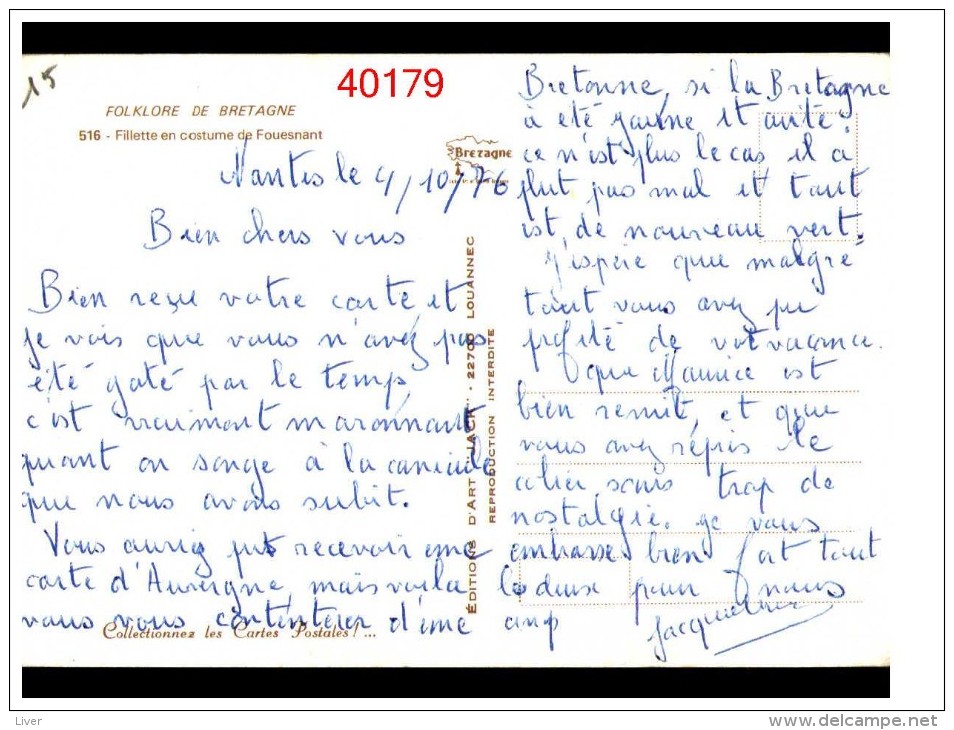 15
40179
FOLKLORE DE BRETAGNE
516 - Fillette en costume de Fouesnant
Bretagne
Nantes le 4/10/76
Bien chers vous
Bien reçu votre carte et
je vois que vous n'avez pas
été gaté par le temps,
c'est vraiment maronnant
quant on songe à la canicule
que nous avons subit.
Vous auriez put recevoir une
carte d'Auvergne, mais voila
vous vous contenterer d'une
Collectionnez les Cartes Postales ! ...
ÉDITIONS D'ART "JACK" - 22700 LOUANNEC
REPRODUCTION INTERDITE
Bretonne, si la Bretagne
à été jaune et
ce n'est plus le cas il a
plut pas mal et tout
est de nouveau vert.
J'espère que malgré
tout vous avez pu
profité de vot vacance.
que Maurice est
bien remit, et que
vous avez répris le
colier sans trop de
nostalgie. je vous
embrasse bien fort tout
le deux pour nous
Jacqueline
Liver
www.delcampe.net